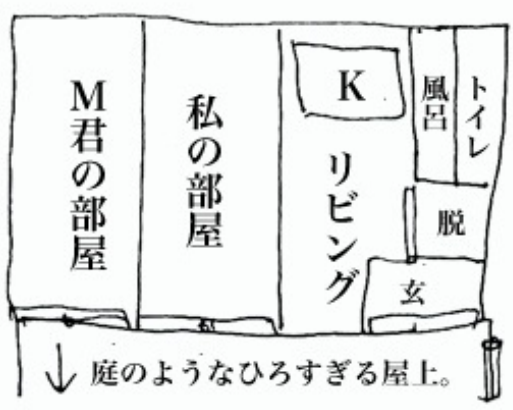 M君の部屋
私の部屋
K
リビング
風呂
トイレ
脱
玄
庭のようなひろすぎる屋上。